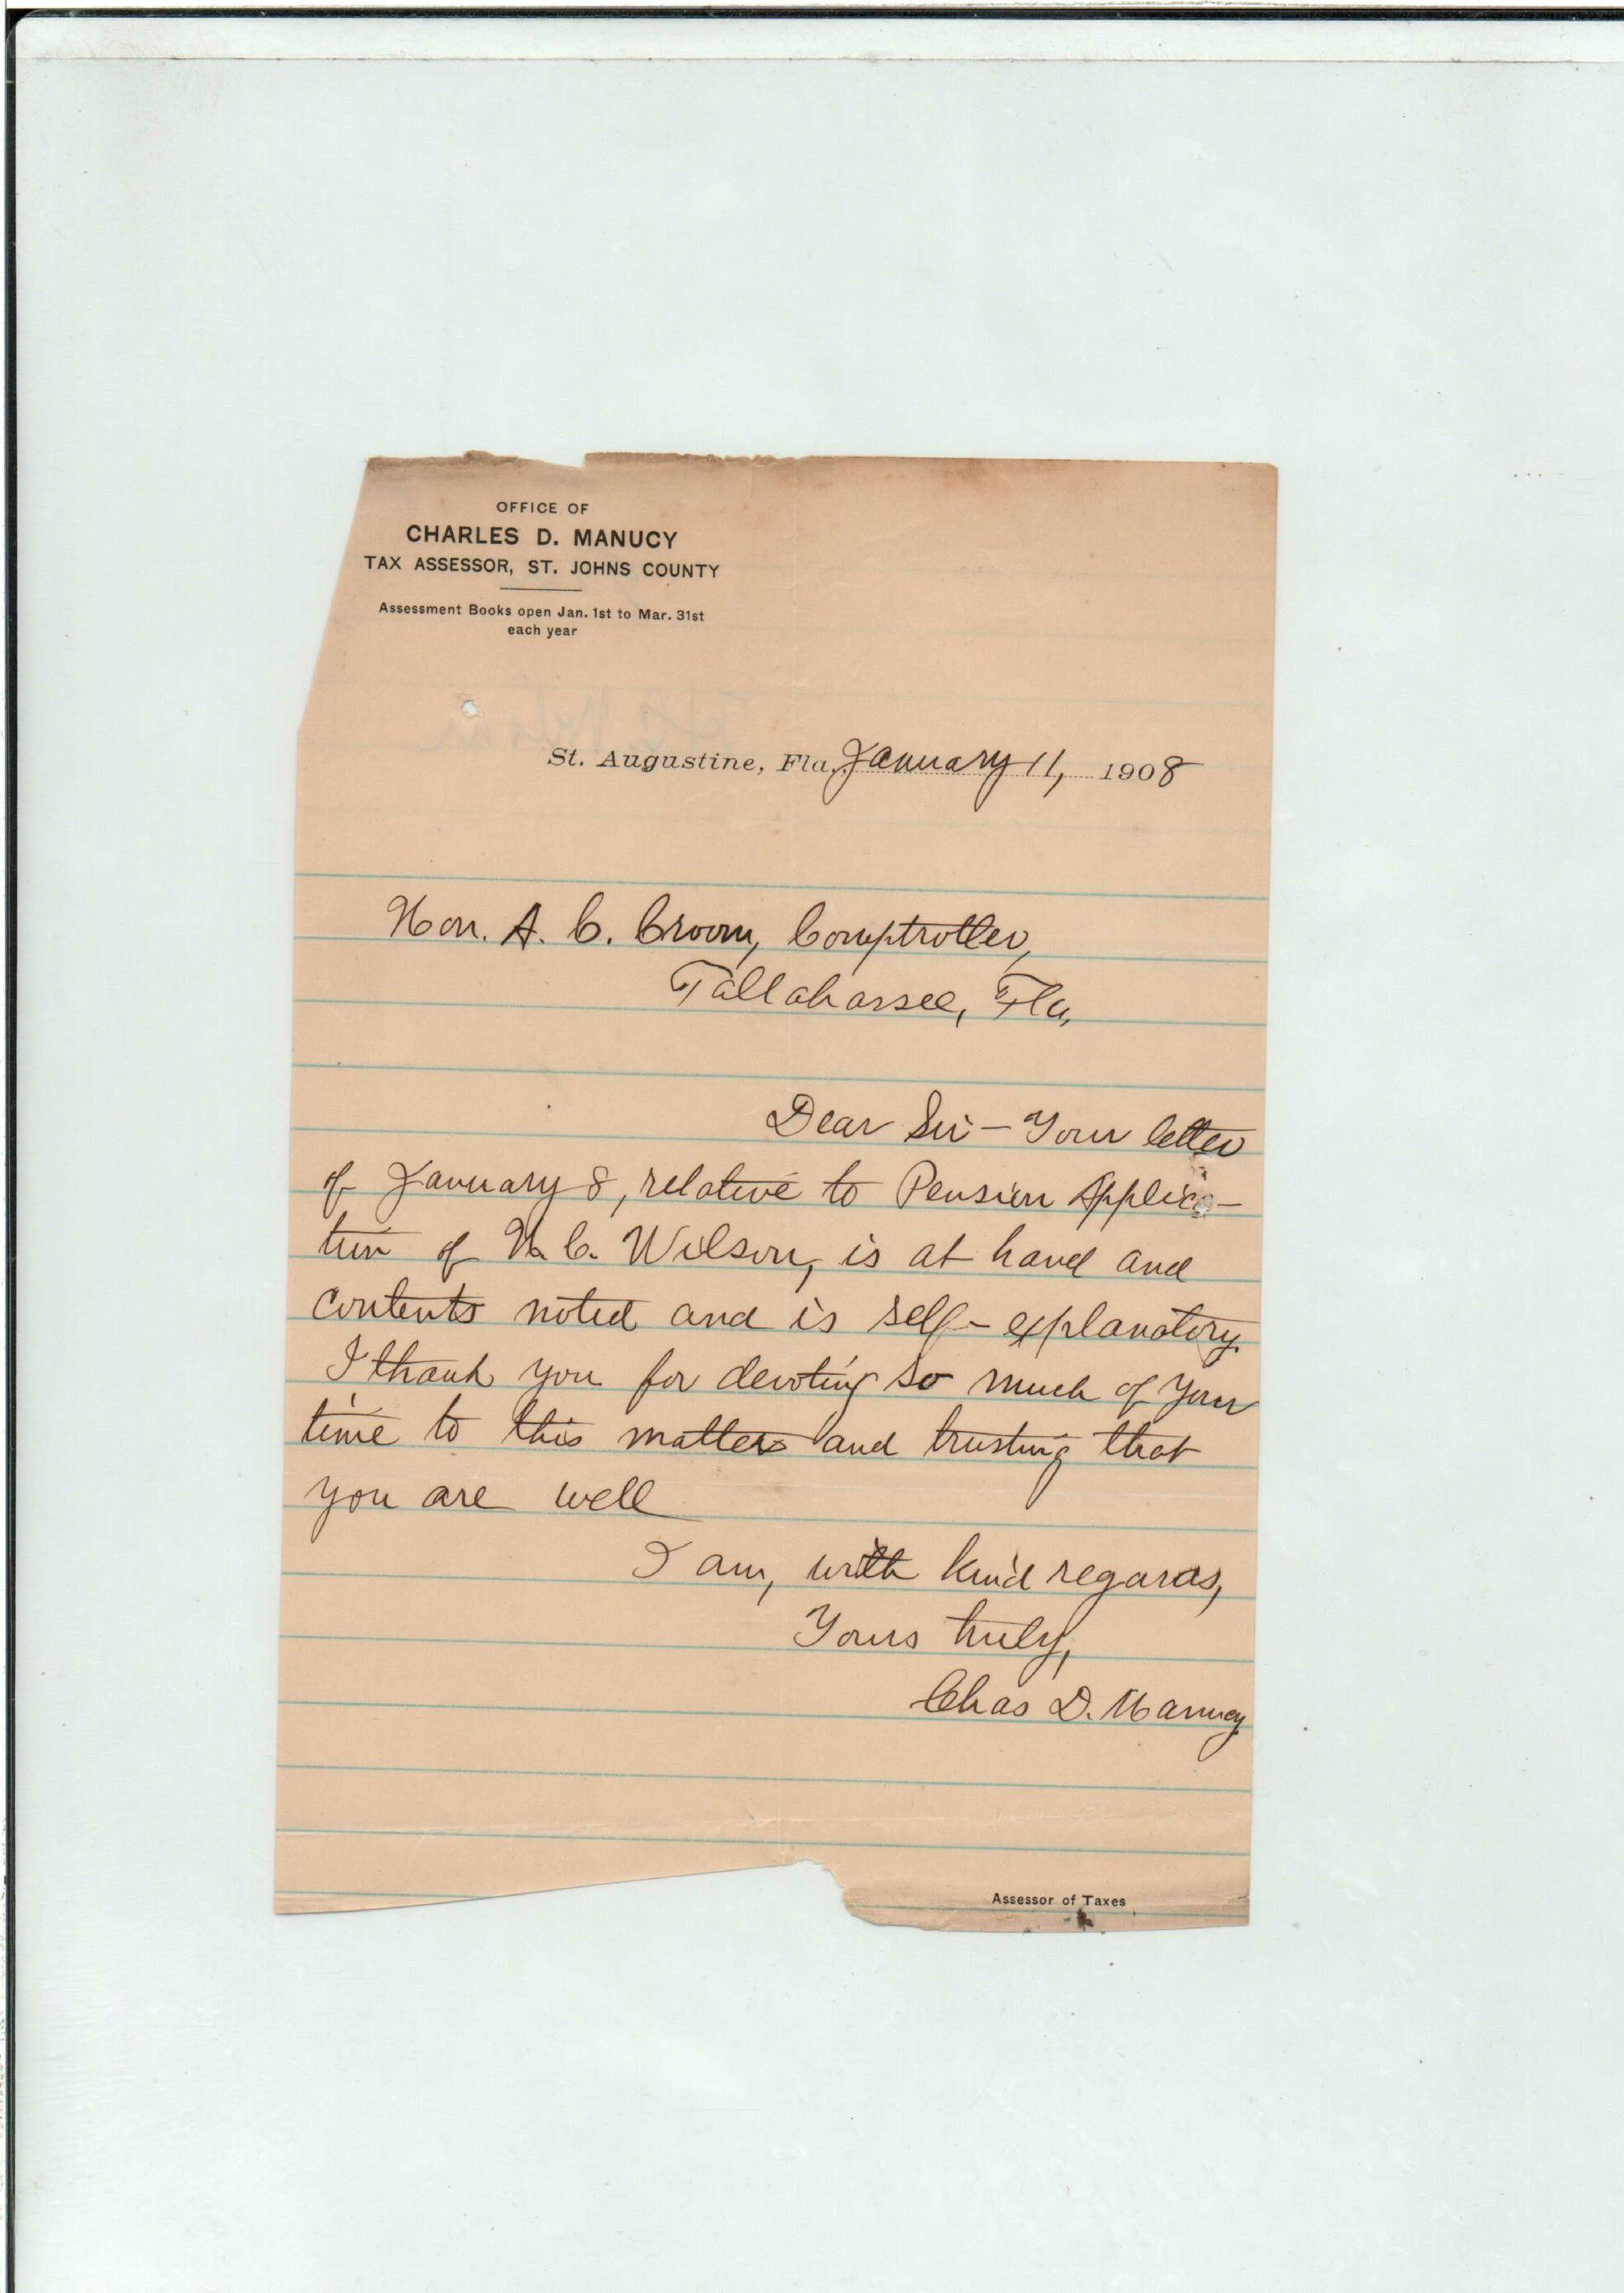 OFFICE OF
CHARLES D. MANUCY
TAX ASSESSOR, ST. JOHNS COUNTY
Assessment Books open Jan. 1st to Mar. 31st
each year
St. Augustine, Fla., January 11, 1908
Hon. A. C. Croom, Comptroller,
Tallahassee, Fla,
Dear Sir - Your letter
of January 8, relative to Pension Applica-
tion of H. C. Wilson, is at hand and
contents noted and is self-explanatory.
I thank you for devoting so much of your
time to this matter and trusting that
you are well
I am, with kind regards,
Yours truly,
Chas D. Manucy
Assessor of Taxes